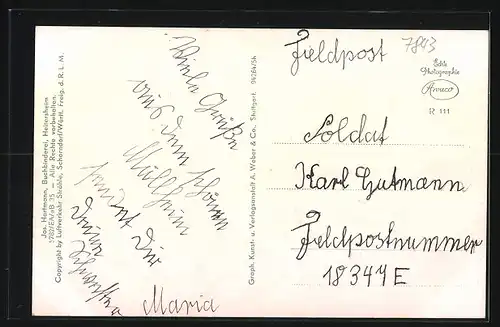 Jos. Hartmann, Buchbinderei, Heitersheim
Alle Rechte vorbehalten.
Copyright by Luftverkehr Strähle, Schorndorf/Württ. Freig. d. R. L. M.
Viele Grüße
aus dem schönen
Müllheim
sendet Dir
Deine
Schwester
Maria
Graph. Kunst- u. Verlagsanstalt A. Weber & Co., Stuttgart
Feldpost
7843
Echte
Photographie
R 111
Soldat
Karl Gutmann
Feldpostnummer
18347E